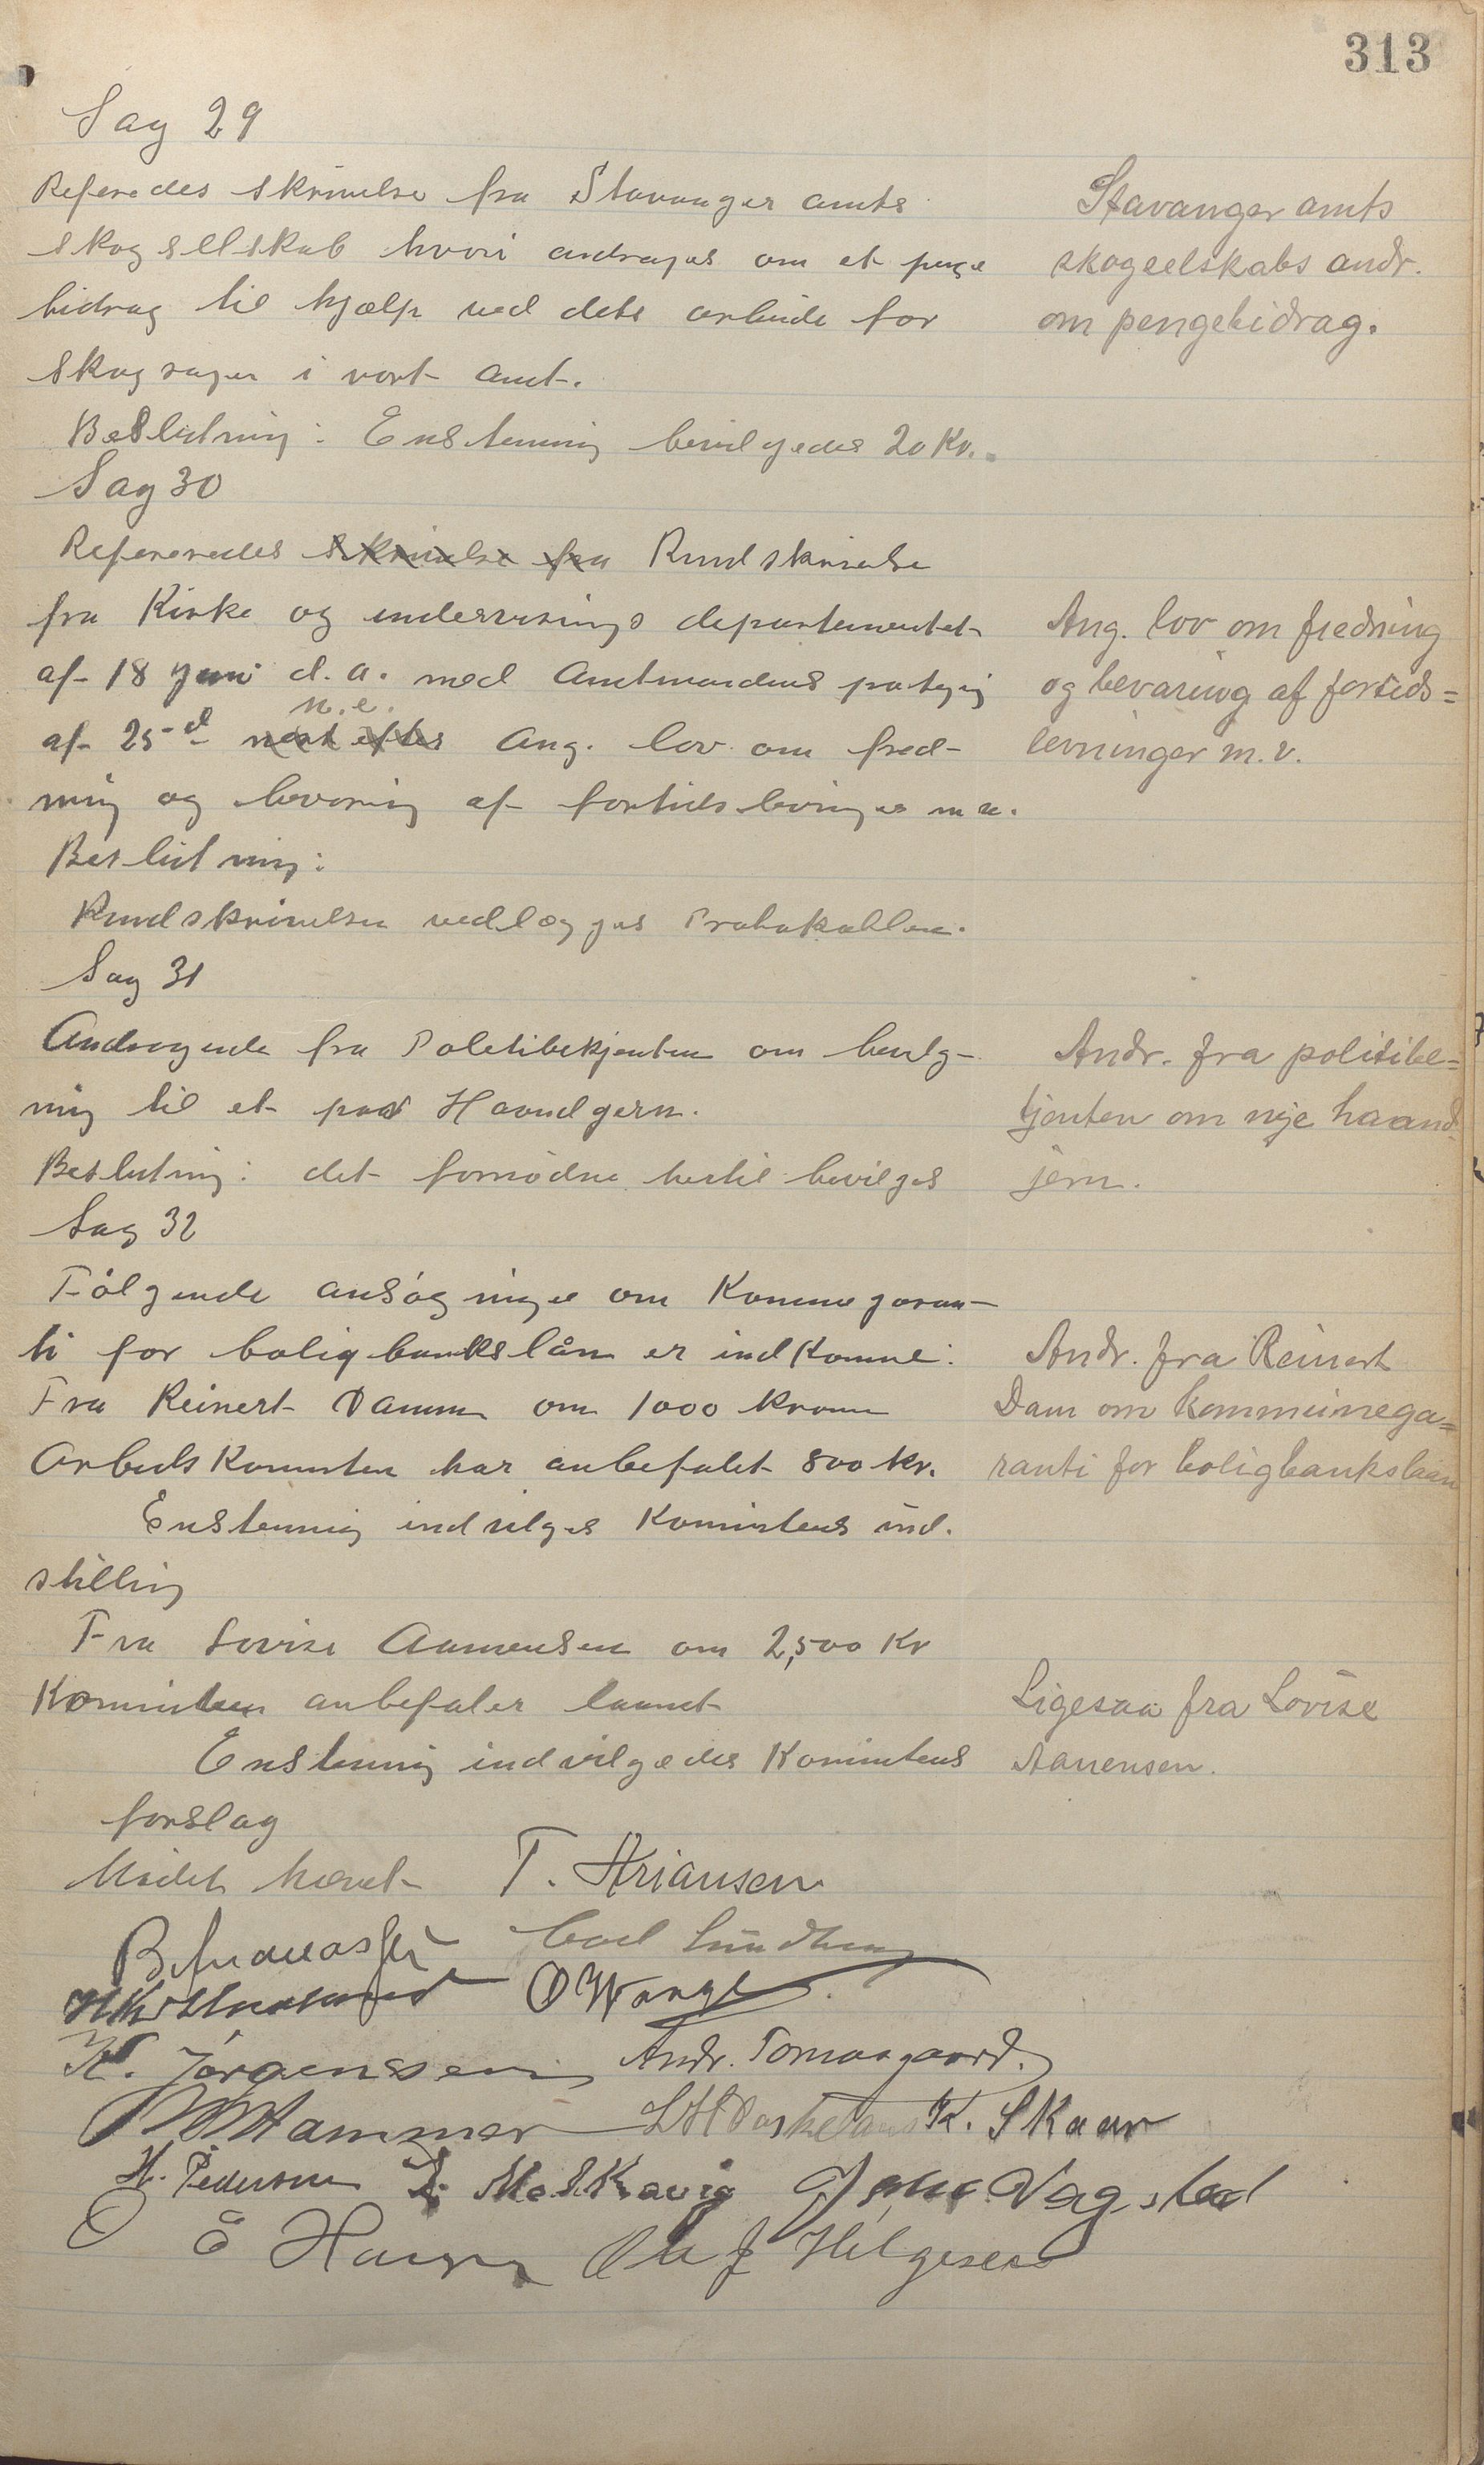 313
Sag 29
Referedes skrivelse fra Stavanger amts
skogsellskab hvori andrages om et penge
bidrag til hjælp ved dets arbeide for
skogsagen i vort amt.
Stavanger amts
skogselskabs andr.
om pengebidrag.
Beslutning: Enstemmig bevilgedes 20 Kr.
Sag 30
Refereredes skrivelse fra Rundskrivelse
fra Kirke og undervisnings departementet
af 18 juni d. a. med Amtmandens
n. e.
af 25-d næst efter Ang. lov om fred-
ning og bevaring af fortidslevninger m v.
Ang. lov om fredning
og bevaring af fortids=
levninger m. v.
Beslutning:
Rundskrivelsen vedlægges Protokollen.
Sag 31
Andragende fra Politibetjenten om bevilg-
ning til et par Haandjern.
Beslutning: det fornødne hertil bevilges
Andr. fra politibe=
tjenten om nye haand=
jern.
Sag 32
Følgende ansøgninger om Kommegaran-
ti for boligbankslån er indkomne:
Fra Reinert Damm om 1000 kroner
Arbeidskomiteen har anbefalet 800 kr.
Enstemmig indvilges Komiteens ind.
stilling
Andr. fra Reinert
Dam om kommunega=
ranti for boligbankslaan
Fra Lovise Aanensen om 2,500 Kr
Komiteen anbefaler laanet
Enstemmig indvilgedes Komiteens
forslag
Ligesaa fra Lovise
Aanensen.
Mødet hævet T. Stiansen
Carl Lundberg
O Wange
K. Jørgenssen Andr. Tomasgaard.
Hammer K. Skaar
H. Pedersen Vagstad
Olaf Helgesen